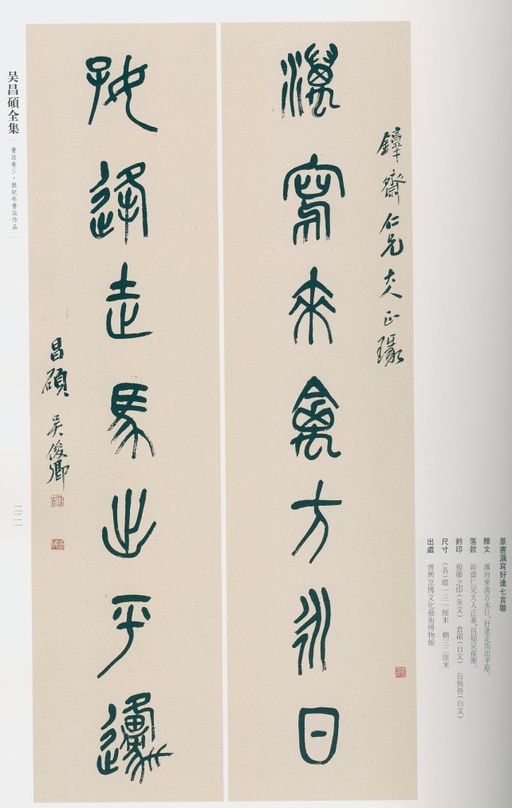 澫寫來禽方永日
齋仁兄大人正篆
好逢走馬出平邍
昌碩吳俊卿
篆書澫寫好逢七言聯
釋文 澫寫來禽方永日,好逢走馬出平原。
落款 齋仁兄大人正篆,昌碩吳俊卿。
鈐印 俊卿之印(朱文) 倉碩(白文) (白文)
尺寸 (各)縱一三一厘米 橫三二厘米
出處 博興京博文化藝術博物館
吴昌碩全集
書法卷三·無紀年書法作品